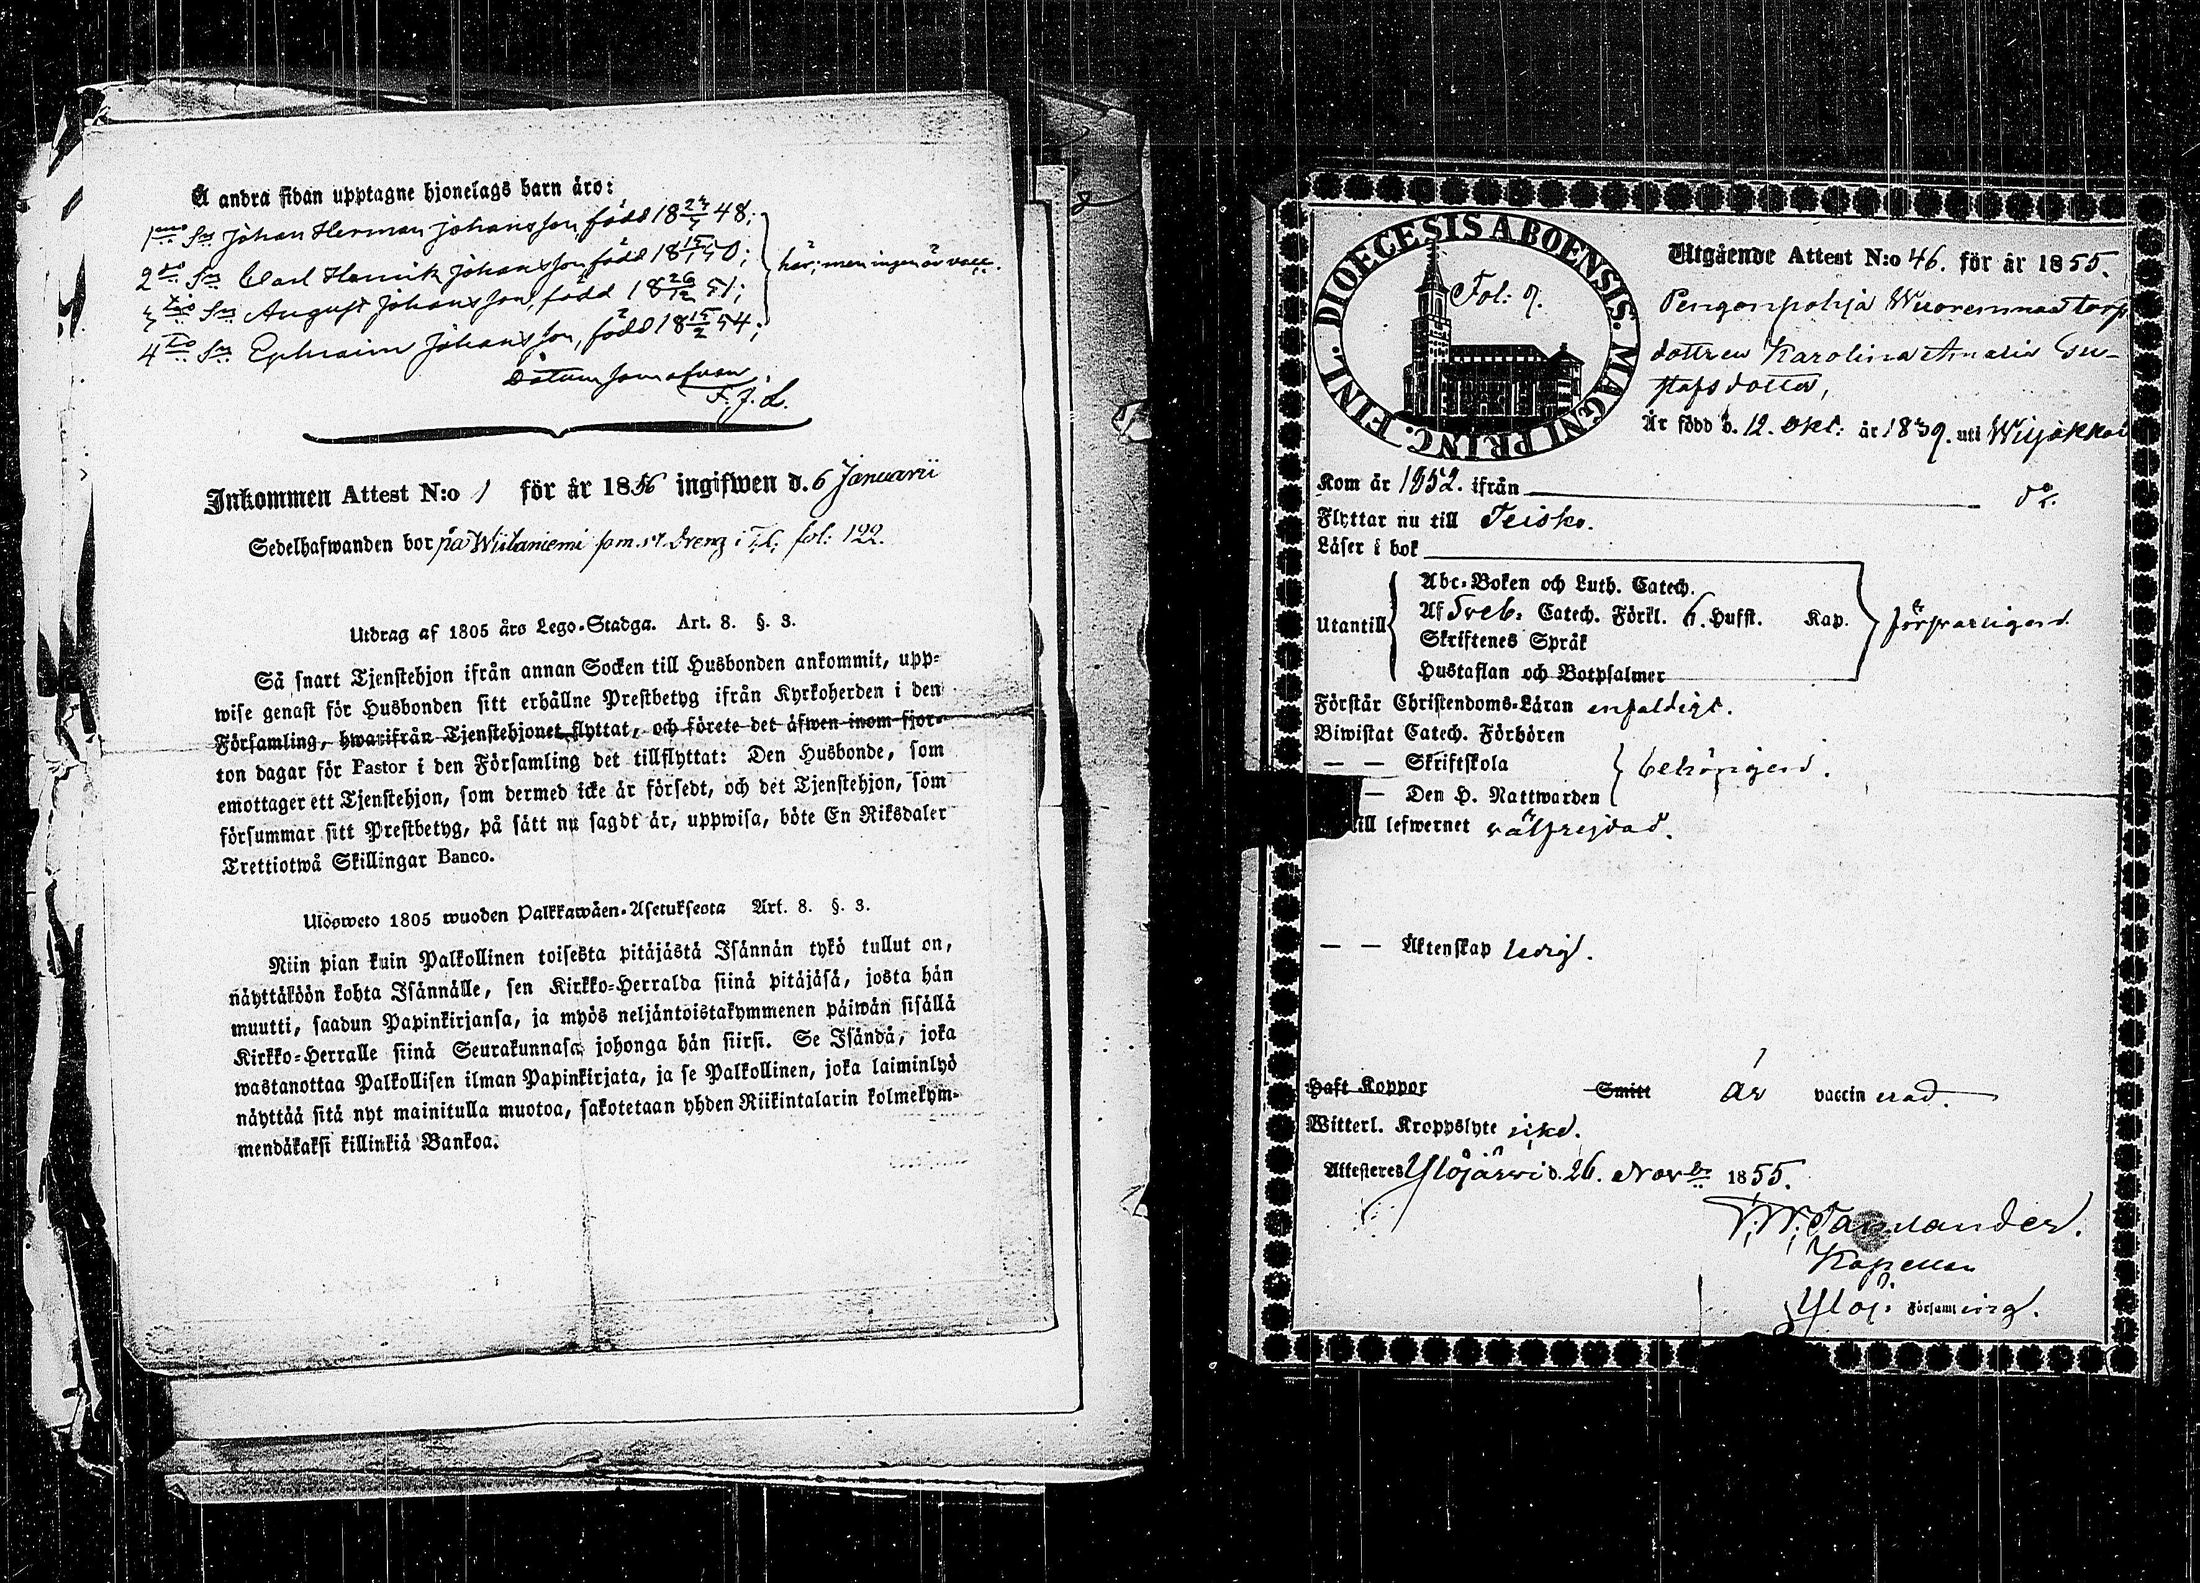 Å andra sidan upptagne hjonelags barn äro:
1mo Sn Johan Herman Johansson född 18 23/7 48;
2do Sn Carl Henrik Johansson född 18 50;
3tio Sn August Johansson, född 18 26/12 51;
4to Sn Ephraim Johansson, född 18 15/2 54;
här; men ingen är vacc.
Datum som ofvan
F. J. L.
Inkommen Attest N:o 1 för år 1856 ingifwen d. 6 Januarii
Sedelhafwanden bor på Wiitaniemi som dreng i fol: 122.
Utdrag af 1805 års Lego-Stadga. Art. 8. §. 3.
Så snart Tjenstehjon ifrån annan Socken till Husbonden ankommit, upp-
wise genast för Husbonden sitt erhållne Prestbetyg ifrån Kyrkoherden i den
Församling, hwarifrån Tjenstehjonet flyttat, och förete det äfwen inom fjor-
ton dagar för Pastor i den Församling det tillflyttat: Den Husbonde, som
emottager ett Tjenstehjon, som dermed icke är försedt, och det Tjenstehjon, som
försummar sitt Prestbetyg, på sätt nu sagdt är, uppwisa, böte En Riksdaler
Trettiotwå Skillingar Banco.
Ulosweto 1805 wuoden Palkkawäen-Asetuksesta Art. 8. §. 3.
Niin pian kuin Palkollinen toisesta pitäjästä Isännän tykö tullut on,
näyttäköön kohta Isännälle, sen Kirkko-Herralda siinä pitäjäsä, josta hän
muutti, saadun Papinkirjansa, ja myös neljäntoistakymmenen päiwän sisällä
Kirkko-Herralle siinä Seurakunnasa, johonga hän siirsi. Se Isändä, joka
wastanottaa Palkollisen ilman Papinkirjata, ja se Palkollinen, joka laiminlyö
näyttää sitä nyt mainitulla muotoa, sakotetaan yhden Riikintalarin kolmekym-
mendäkaksi killinkiä Bankoa.
DIOECESIS ABOENSIS. MAGNI PRINC. FINL.
Fol: 9.
Utgående Attest N:o 46. för år 1855.
Pengonpohja Wuorenmaa torp
dottren Karolina Amalia Gu-
stafsdotter,
Är född d. 12. Okt: år 1839. uti Wiljakkal
Kom år 1852. ifrån do.
Flyttar nu till Teisko.
Läser i bok
Utantill
Abc-Boken och Luth. Catech.
Af Sveb: Catech. Förkl. 6. Hufst. Kap.
Skriftenes Språk
Hustaflan och Botpsalmer
försvarligen.
Förstår Christendoms-Läran enfaldigt.
Biwistat Catech. Förhören
— — Skriftskola
— Den H. Nattwarden
behörigen.
till lefwernet välfrejdad.
— — Äktenskap ledig.
Haft Koppor Smitt är vaccinerad.
Witterl. Kroppslyte icke.
Attesteras Ylöjärwi d. 26. Novbr 1855.
Kapellan
Ylöj: Församling.